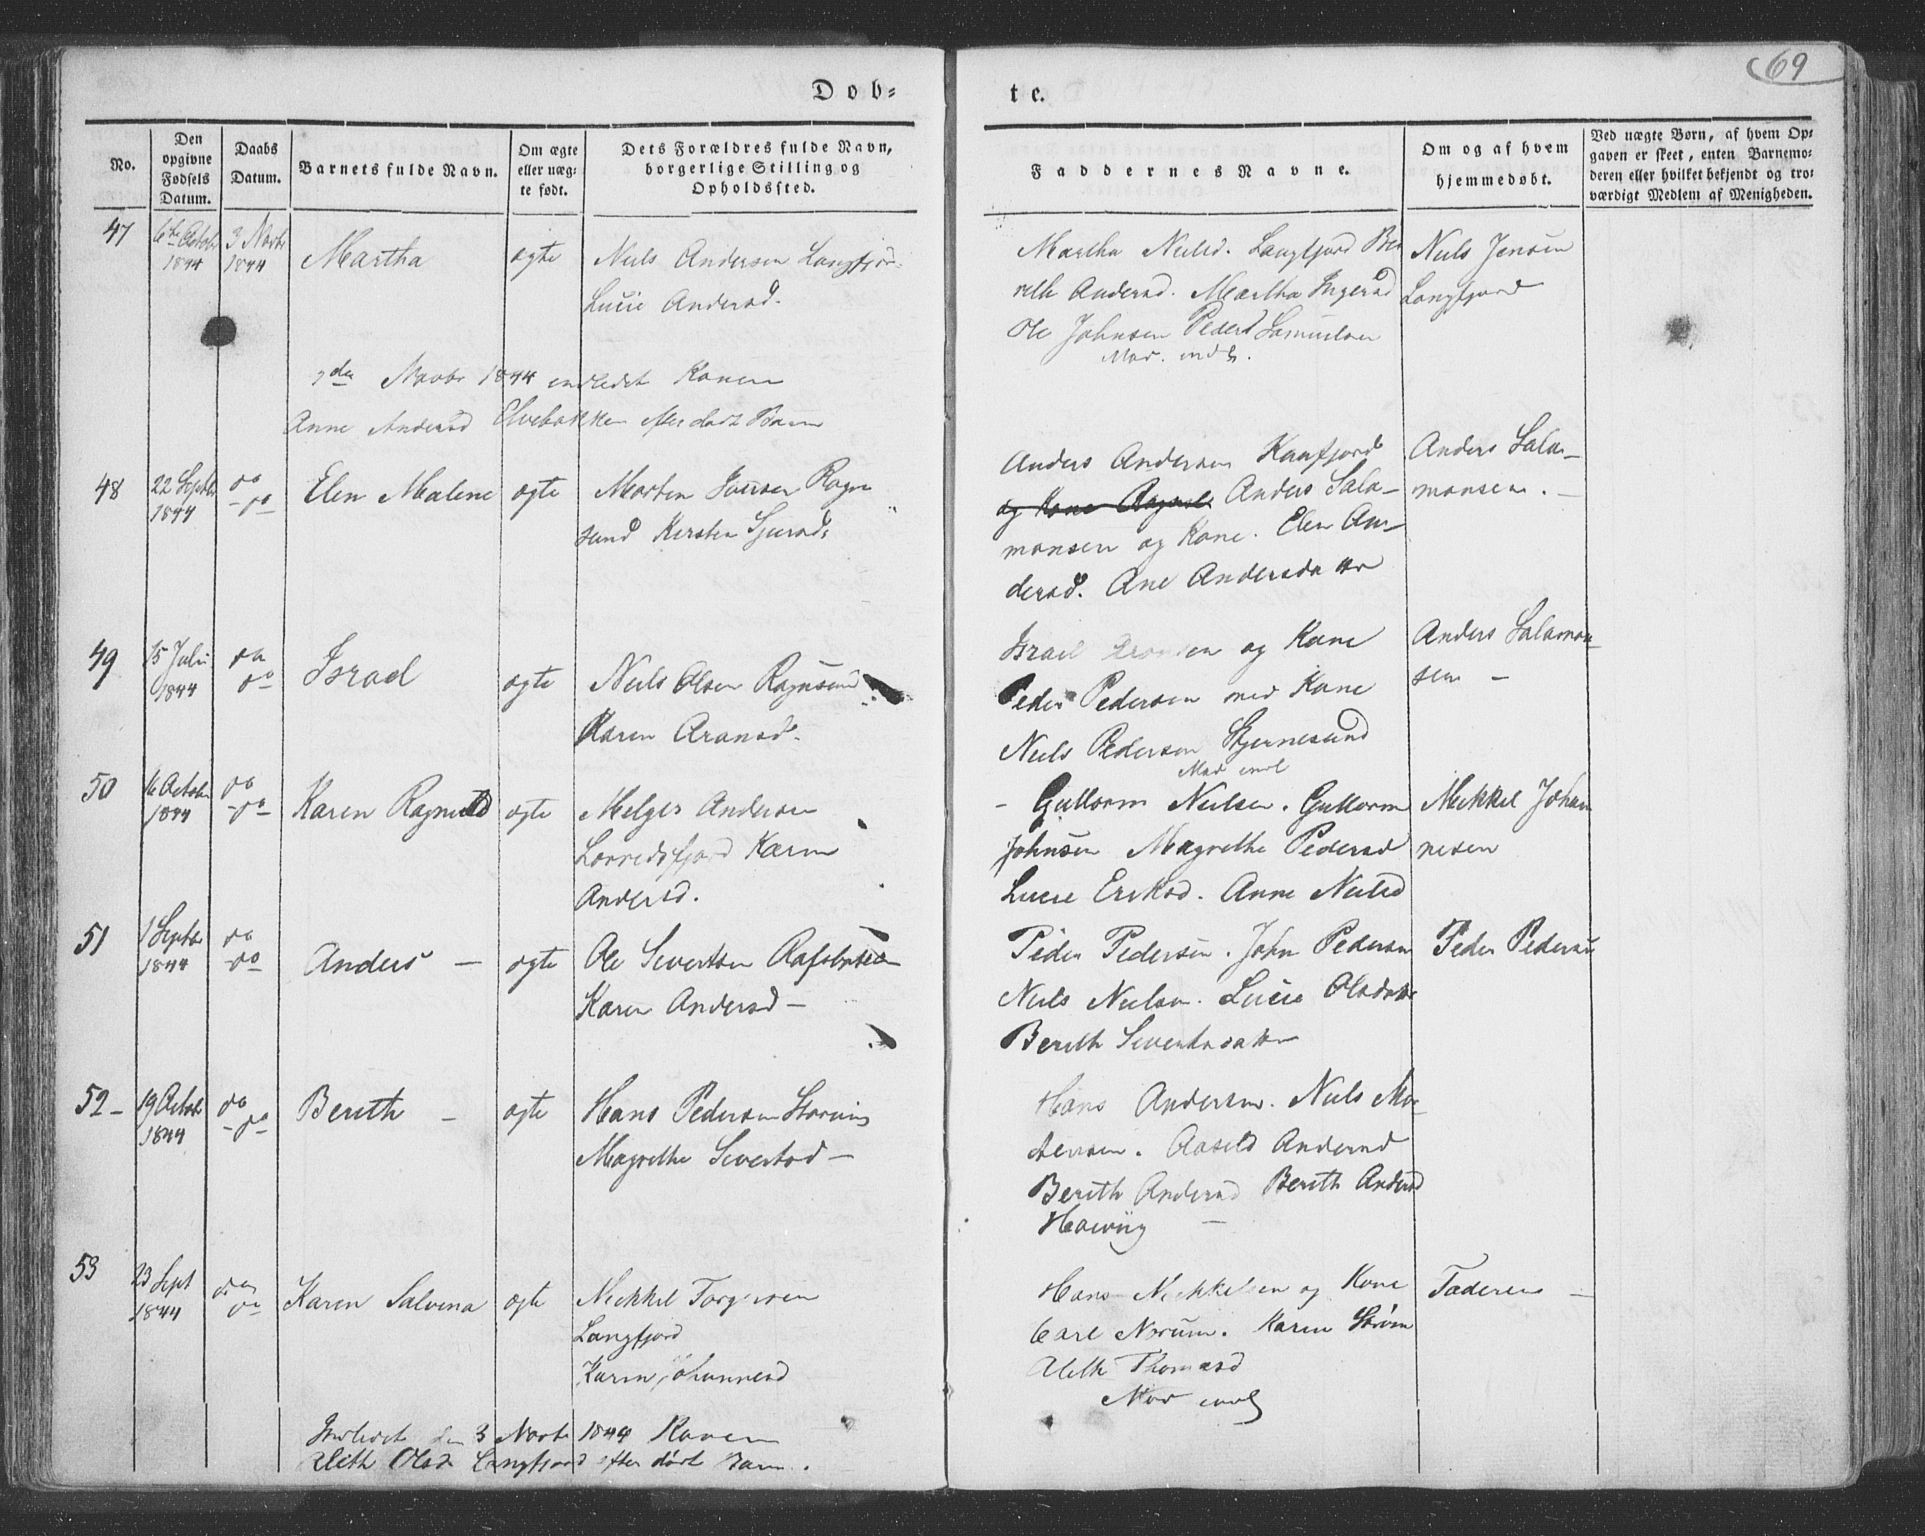 69
Døb-
te.
No.
Den opgivne Fødsels Datum.
Daabs Datum.
Barnets fulde Navn.
Om ægte eller uæg-te født.
Dets Forældres fulde Navn, borgerlige Stilling og Opholdssted.
Faddernes Navne.
Om og af hvem hjemmedøbt.
Ved uægte Børn, af hvem Op-gaven er skeet, enten Barnemo-deren eller hvilket bekjendt og tro-værdigt Medlem af Menigheden.
47
6te Octobr 1844
3 Novbr 1844
Martha
ægte
Niels Andersen Langfjor-
Lucie Andersd.
Martha Nielsd. Langfjord Be-
reth Andersd. Martha Ingersd
Ole Johnsen Peder Samuelsen
Mod. indl.
Niels Jensen
Langfjord
Novbr 1844 indledet Konen
Anne Andersd Elvebakken efter dødt Barn
48
22 Septbr 1844
do
- do
Elen Malene
ægte
Morten Rogn
sund Kersten Sjursd.
Anders Andersen Kaafjord
og Kone Anders Sala-
monsen og Kone. Elen An-
dersd. Ane Andersdatter
Anders Sala-
monsen. -
49
15 Juli 1844
do
do
Israel
ægte
Niels Olsen Rognsund
Karen Aronsd.
Israel Aronsen og Kone
Peder Pedersen med Kone
Niels Pedersen Stjernesund
Mod indl
Anders Salamon-
sen -
50
16 Octobr 1844
do
- do
Karen Ragnild
ægte
Melger Andersen
Karen
Andersd.
- Gullorm Nielsen. Gullorm
Johnsen Magrethe Pedersd
Lucie Eriksd. Anne Nielsd
Mikkel Johan
nesen
51
1 Septbr 1844
do
- do
Anders -
ægte
Ole Sivertsen Rafsbotten
Karen Andersd -
Peder Pedersen. John Pedersen
Niels Nielsen. Lucie Olsdatte
Berith Sivertsdatter
Peder Pedersen
52 -
19 Octobr 1844
do
- do
Berith -
ægte
Hans Pedersen Storvig
Magrethe Sivertsd -
Hans Andersen. Niels Mor-
tensen. Aasild Andersd
Berith Andersd Berith Andersd
-
53
23 Sept 1844
do
do
Karen Salvina
ægte
Mikkel Torgersen
Langfjord
Karen Johannesd
Hans Mikkelsen og Kone
Carl Norum. Karen Strøm
Aleth Thomasd
Mod indl
Faderen -
Indledet den 3 Novbr 1844 Konen
Aleth Olsd Langfjord efter dødt Barn.